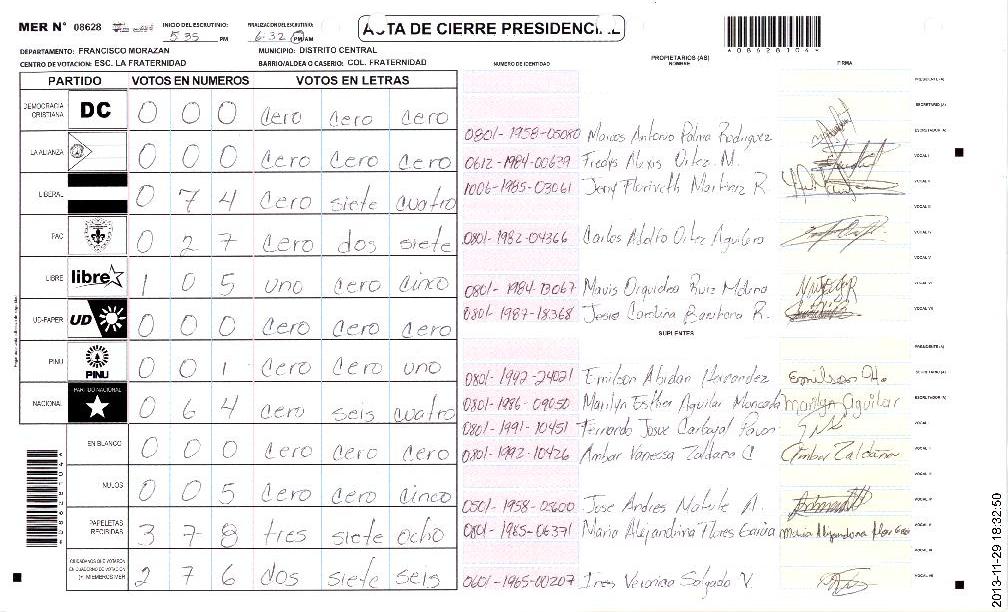 MER N° 08628 INICIO DEL ESCRUTINIO: 5 35 PM FINALIZACION DEL ESCRUTINIO: 6:32 PM/AM
ACTA DE CIERRE PRESIDENCIAL
4086281064
DEPARTAMENTO: FRANCISCO MORAZAN MUNICIPIO: DISTRITO CENTRAL
CENTRO DE VOTACION: ESC. LA FRATERNIDAD BARRIO/ALDEA O CASERIO: COL. FRATERNIDAD
PARTIDO VOTOS EN NUMEROS VOTOS EN LETRAS
DEMOCRACIA CRISTIANA DC 0 0 0 Cero cero cero
LA ALIANZA 0 0 0 Cero Cero Cero
LIBERAL 0 7 4 Cero siete cuatro
PAC 0 2 7 Cero dos siete
LIBRE libre 1 0 5 uno Cero Cinco
UD-FAPER UD 0 0 0 Cero Cero Cero
PINU PINU 0 0 1 Cero Cero uno
NACIONAL PARTIDO NACIONAL 0 6 4 Cero seis cuatro
EN BLANCO 0 0 0 Cero Cero Cero
NULOS 0 0 5 Cero Cero Cinco
PAPELETAS RECIBIDAS 3 7 8 tres siete ocho
CIUDADANOS QUE VOTARON EN CUADERNO DE VOTACION (+ MIEMBROS MER) 2 7 6 dos siete seis
NUMERO DE IDENTIDAD PROPIETARIOS (AS) NOMBRE FIRMA
PRESIDENTE (A)
SECRETARIO (A)
0801-1958-05080 Marcos Antonio Palma Rodriguez ESCRUTADOR (A)
0612-1984-00639 Fredys Alexis Ortez M. VOCAL I
1006-1985-03061 Jeny Florineth Martinez R. VOCAL II
VOCAL III
0801-1982-04366 Carlos Adolfo Ortez Aguilera VOCAL IV
VOCAL V
0801-1984-13067 Mavis Orquidea Ruiz Molina VOCAL VI
0801-1987-18368 Jessica Carolina Barahona R. VOCAL VII
SUPLENTES
PRESIDENTE (A)
0801-1992-24021 Emilson Abidan Hernandez Emilson H. SECRETARIO (A)
0801-1986-09050 Marilyn Esther Aguilar Moncada Marilyn Aguilar ESCRUTADOR (A)
0801-1991-10451 Fernando Josue Carbajal Pavon VOCAL I
0801-1992-10426 Ambar Vanessa Zaldana C Ambar Zaldana VOCAL II
VOCAL III
0501-1958-05600 Jose Andres A. VOCAL IV
0801-1965-06371 Maria Alejandrina Flores Garcia VOCAL V
VOCAL VI
0601-1965-00207 Ines Veronica Salgado V. VOCAL VII
2013-11-29 18:32:50